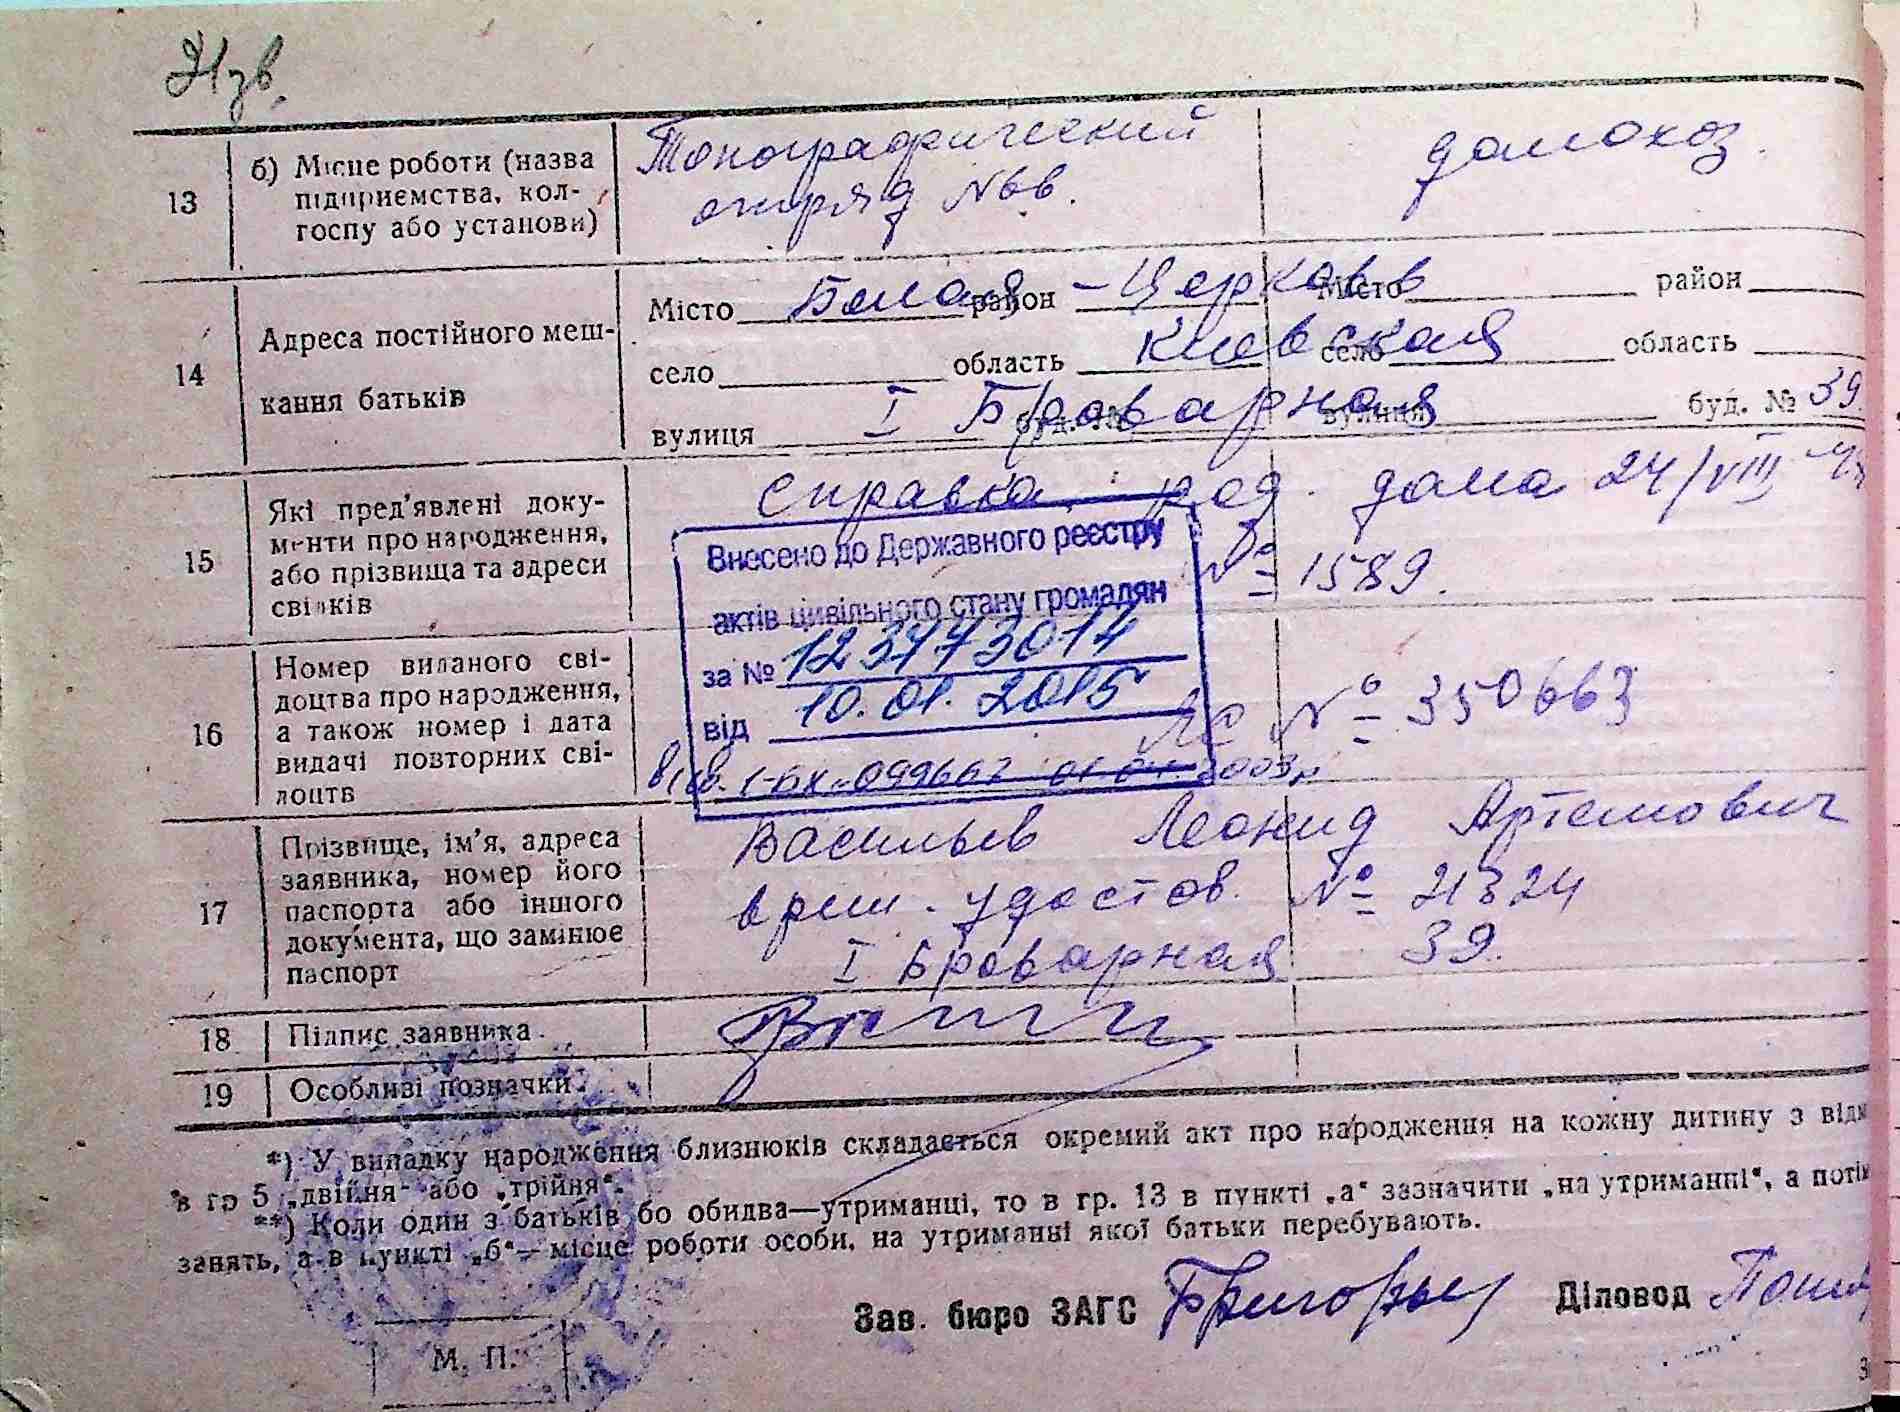 13
б) Місце роботи (назва
підприємства, кол-
госпу або установи)
Топографический
отряд №66.
домохоз.
14
Адреса постійного меш-
кання батьків
Місто Белая район - Церковь Місто район
село область Киевская село область
вулиця I Броварная буд. № вулиця буд. № 39.
15
Які пред'явлені доку-
менти про народження,
або прізвища та адреси
свідків
Справка род. дома 24/VIII
№ 1589.
Внесено до Державного реєстру
актів цивільного стану громадян
за №
від 10.01.2015
16
Номер виданого сві-
доцтва про народження,
а також номер і дата
видачі повторних сві-
доцтв
№ 350663
17
Прізвище, ім'я, адреса
заявника, номер його
паспорта або іншого
документа, що замінює
паспорт
Васильев Леонид Артемович
врем. удостов. № 21324
I Броварная 39.
18
Підпис заявника.
19
Особливі позначки.
*) У випадку народження близнюків складається окремий акт про народження на кожну дитину з
в гр 5 „двійня“ або „трійня“.
**) Коли один з батьків бо обидва—утриманці, то в гр. 13 в пункті „а“ зазначити „на утриманні“, а
занять, а в пункті „б“— місце роботи особи, на утриманні якої батьки перебувають.
Зав. бюро ЗАГС Діловод
М. П.